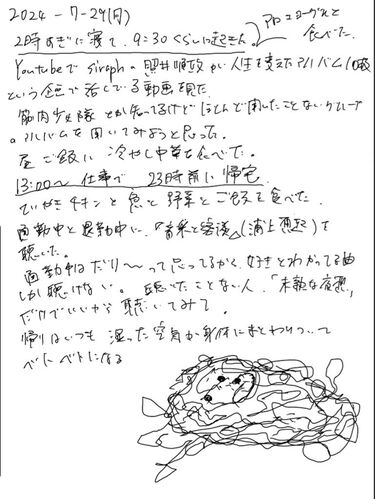 2024-7-29(月)
2時すぎに寝て、9:30くらいに起きた。
ヨーグルトと
食べた。
Youtubeでsiraphの照井順政が人生を変えたアルバム10枚
という企画で話してる動画を観た。
筋肉少女隊とか知ってるけどほとんど聞いたことないグループ
のアルバムを聞いてみようと思った。
昼ご飯に冷やし中華を食べた。
13:00〜仕事で 23時前に帰宅
チキンと魚と野菜とご飯を食べた。
出勤中と退勤中に、『音楽と密談』(浦上想起)を
聴いた。
出勤中はだり〜って思ってるから、好きとわかってる曲
しか聴けない。聴いたことない人、「未熟な夜想」
だけでいいから聴いてみて。
帰りはいつも湿った空気が身体にまとわりついて
ベトベトになる